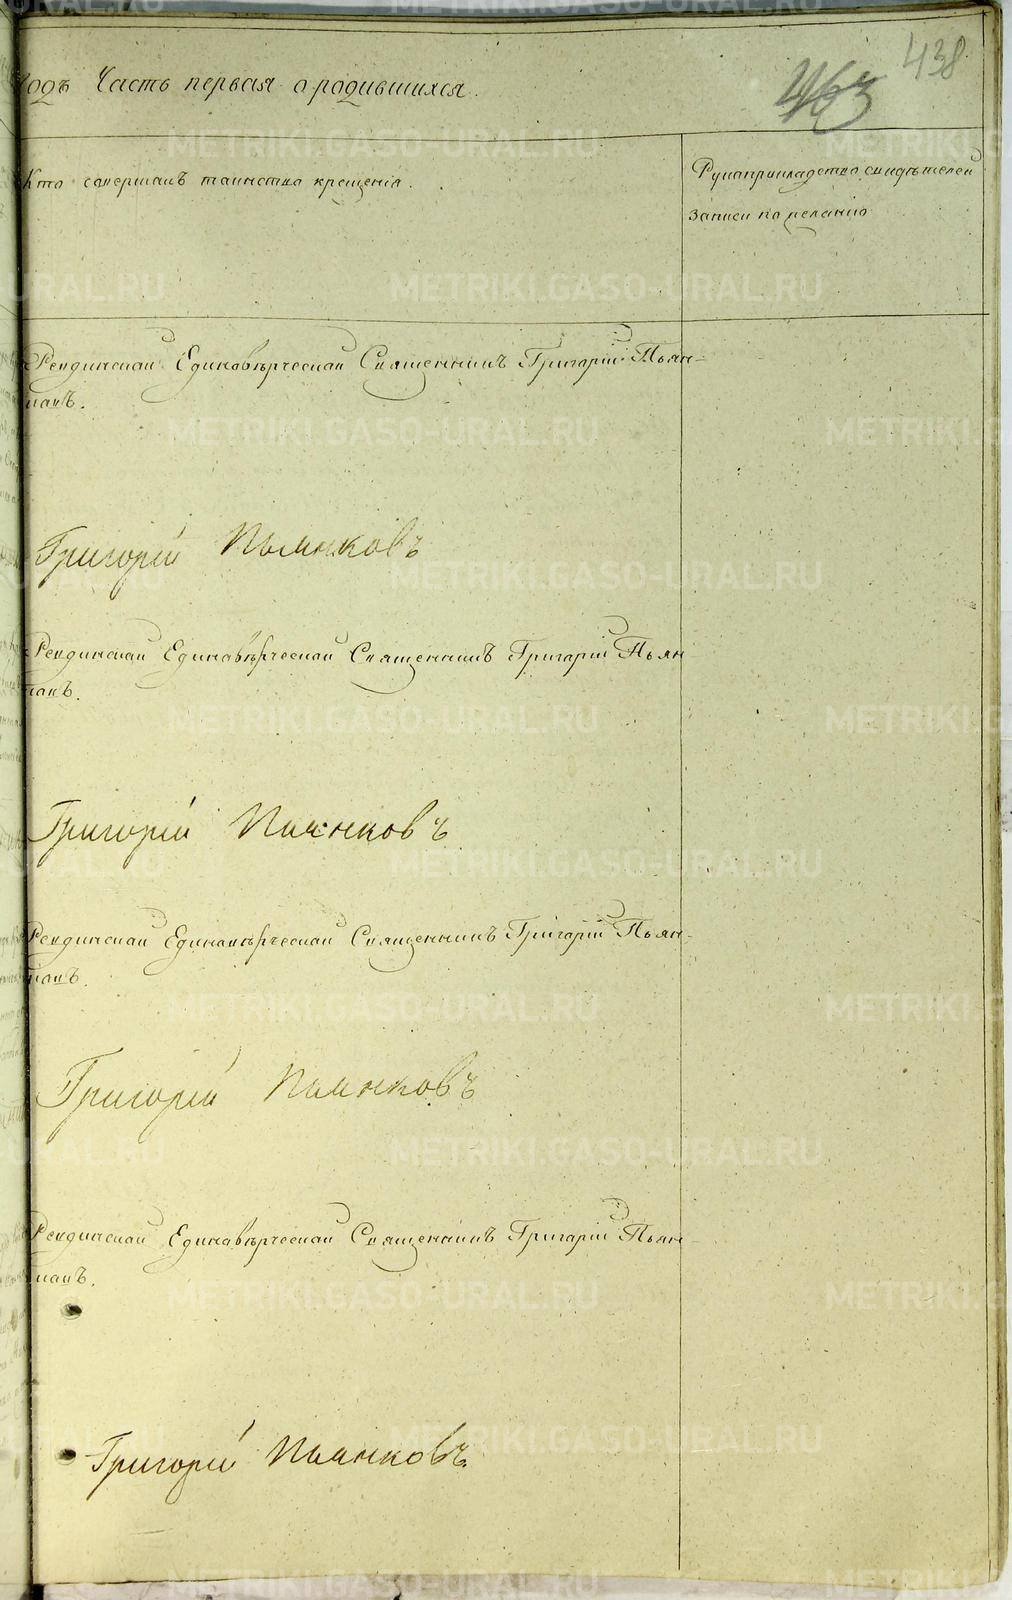 438
463
годъ Часть первая о родившихся.
Кто совершалъ таинство крещенія.
Рукоприкладство свидѣтелей
записи по желанію
Ревдинской Единовѣрческой Священникъ Григорій Пьян-
ковъ.
Григорій Пьянковъ
Ревдинской Единовѣрческой Священникъ Григорій Пьян
ковъ.
Григорій Пьянковъ
Ревдинской Единовѣрческой Священникъ Григорій Пьян-
ковъ.
Григорій Пьянковъ
Ревдинской Единовѣрческой Священникъ Григорій Пьян-
ковъ.
Григорій Пьянковъ
METRIKI.GASO-URAL.RU